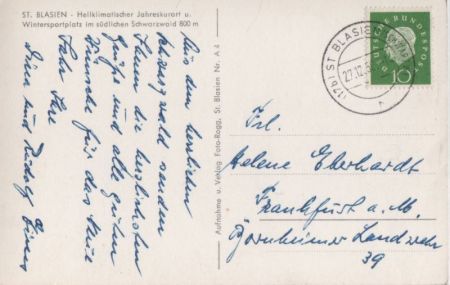 ST. BLASIEN - Heilklimatischer Jahreskurort u.
Wintersportplatz im südlichen Schwarzwald 800 m
Aus dem herrlichen
Schwarzwald senden
Ihnen die herzlichsten
Grüße und alle guten
Wünsche für das neue
Jahr Ihre
Dina und Rudolf
Aufnahme u. Verlag Foto-Rogg, St. Blasien Nr. A 4
(17b) ST BLASIEN
27.12.
DEUTSCHE BUNDESPOST
10
Frl.
Helene Eberhardt
Frankfurt a. M.
Bornheimer Landwehr
39